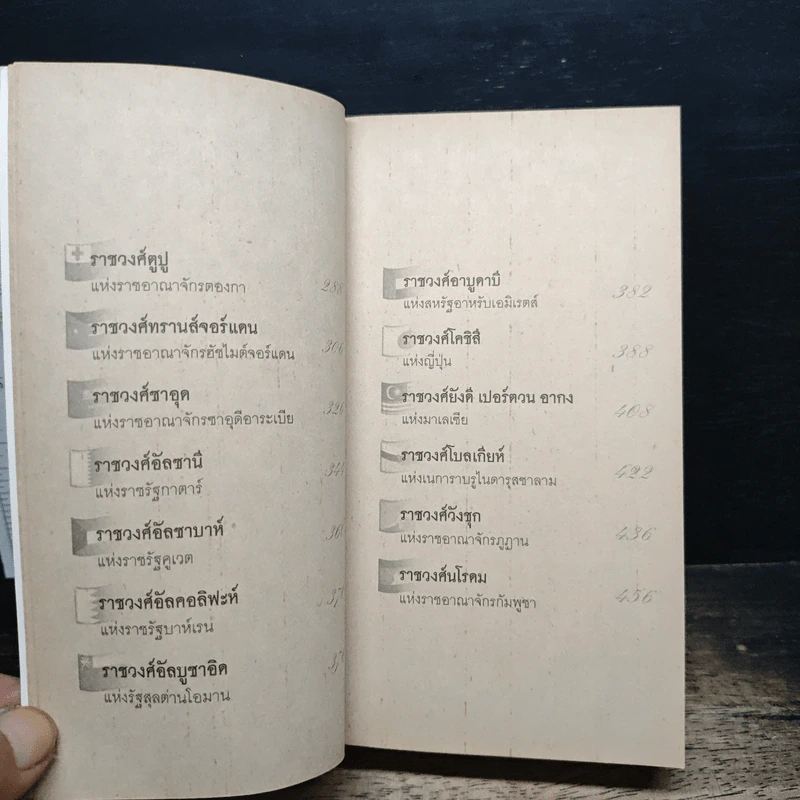 ราชวงศ์ตูปู
แห่งราชอาณาจักรตองกา
ราชวงศ์ทรานส์จอร์แดน
แห่งราชอาณาจักรฮัชไมต์จอร์แดน
ราชวงศ์ซาอุด
แห่งราชอาณาจักรซาอุดีอาระเบีย
ราชวงศ์อัลซานี
แห่งราชรัฐกาตาร์
ราชวงศ์อัลซาบาห์
แห่งราชรัฐคูเวต
ราชวงศ์อัลคอลิฟะห์
แห่งราชรัฐบาห์เรน
ราชวงศ์อัลบูซาอิด
แห่งรัฐสุลต่านโอมาน
ราชวงศ์อาบูดาบี
แห่งสหรัฐอาหรับเอมิเรตส์ 382
ราชวงศ์โคชิสี
แห่งญี่ปุ่น 388
ราชวงศ์ยังดี เปอร์ตวน อากง
แห่งมาเลเซีย 408
ราชวงศ์โบลเกียห์
แห่งเนการาบรูไนดารุสซาลาม 422
ราชวงศ์วังชุก
แห่งราชอาณาจักรภูฏาน 436
ราชวงศ์นโรดม
แห่งราชอาณาจักรกัมพูชา 456